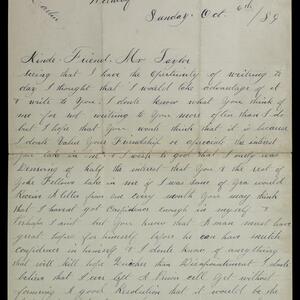 Sunday Oct. 6th / 89
Kinde Friend Mr Taylor
Seeing that I have the Opertunity of writing to
day I thought that I would take advantage of it
& write to You. I donte know what You think of
me for not writing to Your more often than I do
but I hope that You wonte think that it is because
I donte Value Your Friendship or apreceate the interest
You take in me & I wish to God that I only was
Deserving of half the interest that You & the rest of
Yoke Fellows take in me if I was Some of You would
Receive A letter from me every month You may think
that I havent got Confidence enough in myself &
Perhaps I and You know that A man must have
great hopes for himself before he can have much
Confidence in himself & I donte know of everything
that will kill hope Quicker than Disapointment I donte
believe that I ever left A Prison Cell Yet without
forming A good Resolution that it would be the